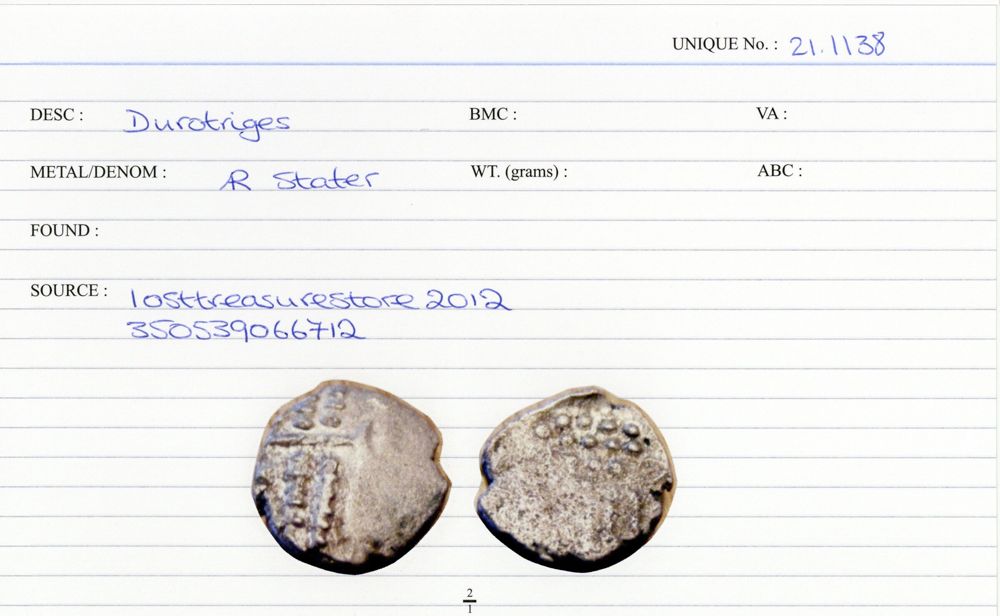 UNIQUE No. : 21.1138
DESC : Durotriges BMC : VA :
METAL/DENOM : AR Stater WT. (grams) : ABC :
FOUND :
SOURCE : losttreasurestore 2012
350539066712
2
1